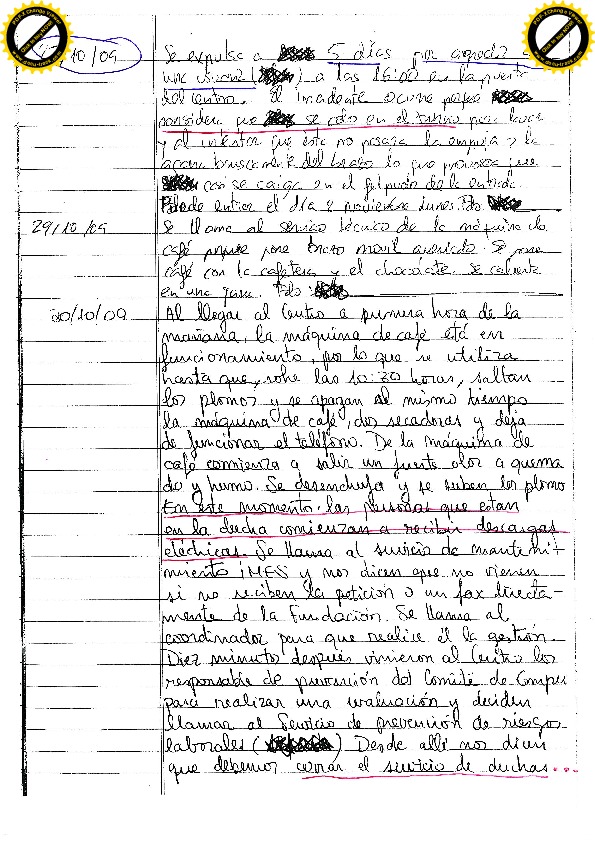 /10/09 Se expulsa a 5 días por agredir a
una usuaria ( ) a las 16:00 en la puerta
del centro. El incidente ocurre porque
considera que se cola en el turno para
y al intentar que éste no pasara la empuja y la
agarra bruscamente del brazo lo que provoca que
casi se caiga en el felpudo de la entrada.
Puede entrar el día 2 noviembre lunes. Fdo
29/10/09 Se llama al servicio técnico de la máquina de
café porque pone brazo móvil averiado. Se pone
café con la cafetera y el chocolate se calienta
en una jarra. Fdo:
30/10/09 Al llegar al Centro a primera hora de la
mañana, la máquina de café está en
funcionamiento, por lo que se utiliza
hasta que, sobre las 10:30 horas, saltan
los plomos y se apagan al mismo tiempo
la máquina de café, dos secadoras y deja
de funcionar el teléfono. De la máquina de
café comienza a salir un fuerte olor a quema
do y humo. Se desenchufa y se suben los plomos
En este momento las personas que estan
en la ducha comienzan a recibir descargas
eléctricas. Se llama al servicio de manteni-
miento IMES y nos dicen que no vienen
si no reciben la petición o un fax directa-
mente de la Fundación. Se llama al
coordinador para que realice él la gestión.
Diez minutos después vinieron al Centro los
responsable de prevención del Comité de Empre
para realizar una evaluación y deciden
llamar al Servicio de prevención de riesgos
laborales ( ) Desde allí nos dicen
que debemos cerrar el servicio de duchas...